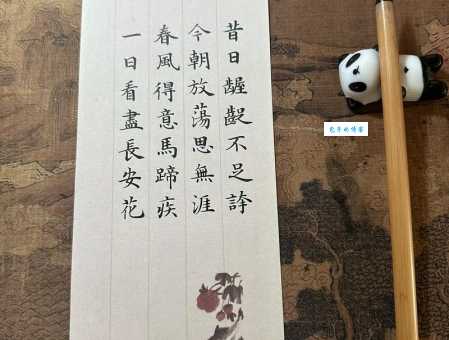 昔日齷齪不足誇
今朝放蕩思無涯
春風得意馬蹄疾
一日看盡長安花